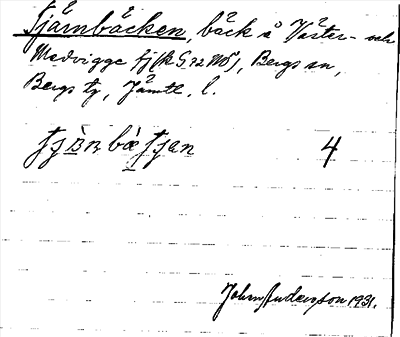 Tjärnbäcken, bäck å Väster- och
Medvigge fj (k G. 72 NO), Bergs sn,
Bergs tg, Jämtl. l.
4
John Andersson 1931.